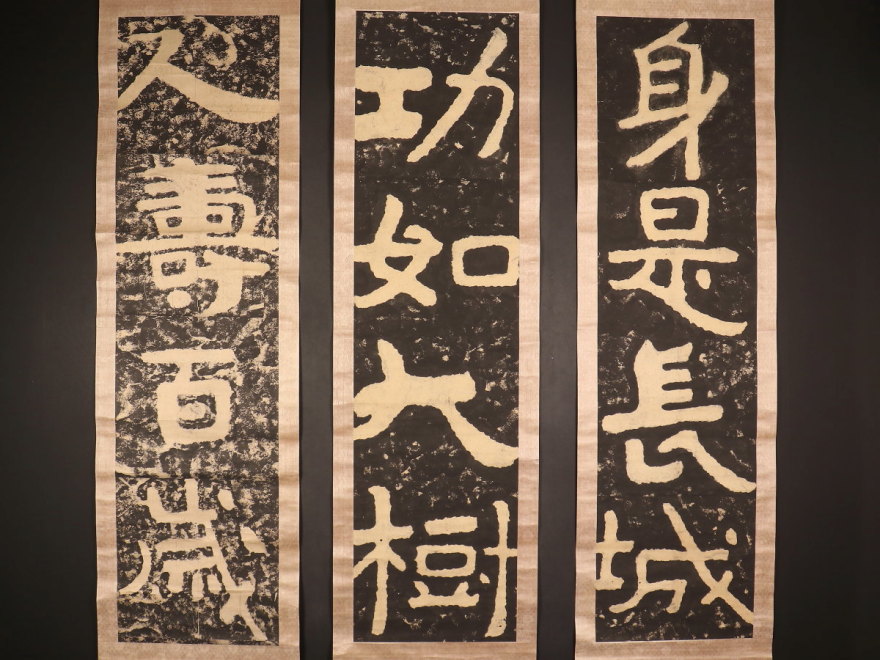 身是長城
功如大樹
久壽百歲